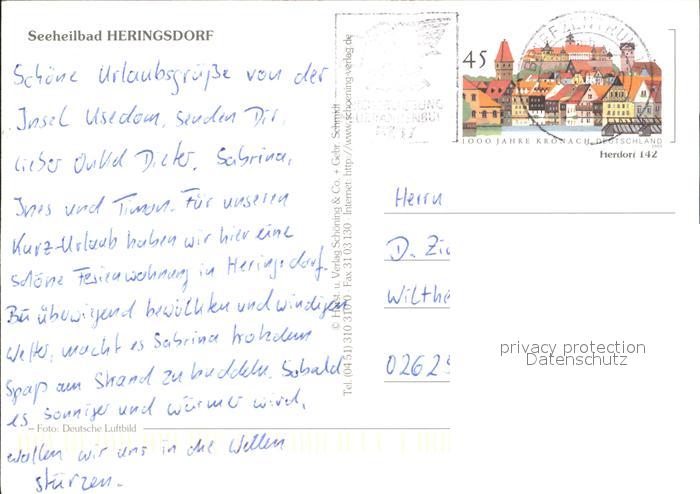 Seeheilbad HERINGSDORF
Schöne Urlaubsgrüße von der
Insel Usedom, senden Dir,
lieber Onkel Dieter, Sabrina,
Ines und Timon. Für unseren
Kurz-Urlaub haben wir hier eine
schöne Ferienwohnung in Heringsdorf.
Bei überwiegend bewölkten und windigen
Wetter, macht es Sabrina trotzdem
Spaß am Strand zu buddeln. Sobald
es sonniger und wärmer wird,
wollen wir uns in die Wellen
stürzen.
Foto: Deutsche Luftbild
© Horst u. Verlag Schöning & Co. + Gebr. Schmidt
Tel. (04 51) 310 31 0 Fax 31 03 130 Internet: http://www.schoening-verlag.de
BRIEFZENTRUM
45
1000 JAHRE KRONACH DEUTSCHLAND
Herdorf 142
Herrn
D. Zi
Wilthe
0262
privacy protection
Datenschutz